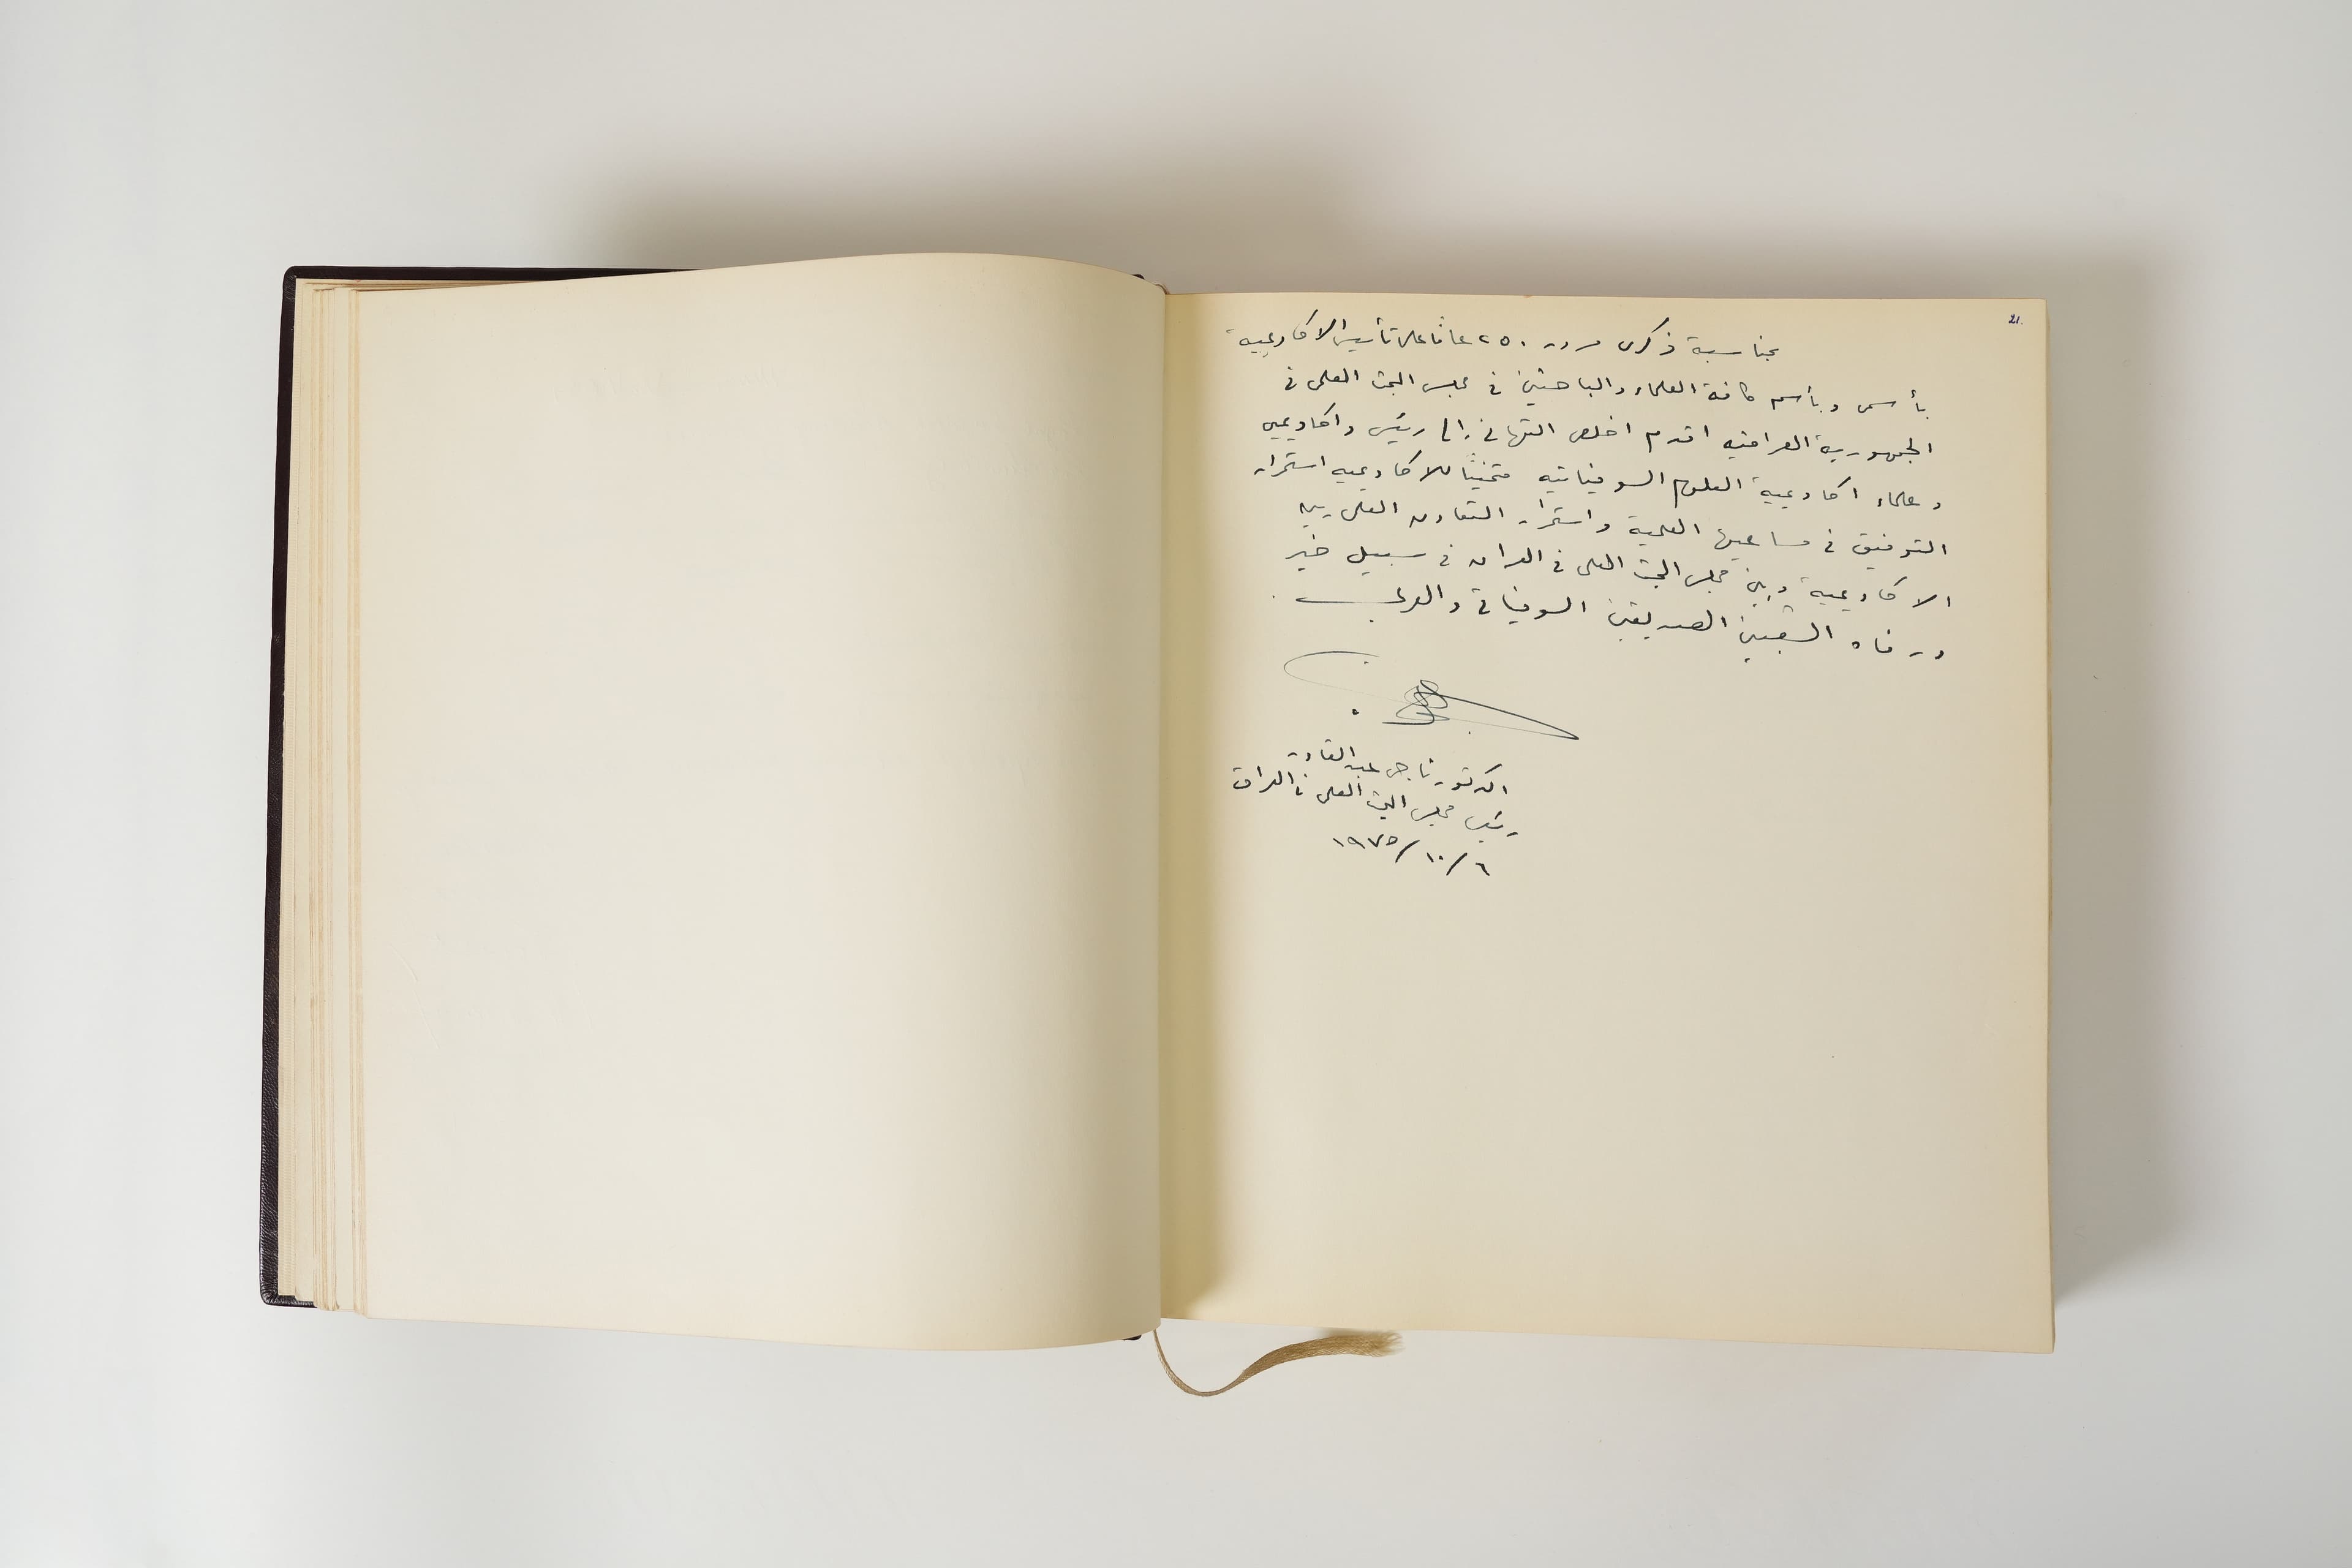 21.
بمناسبة ذكرى مرور ٢٥٠ عاماً على تأسيس الاكاديمية
بأسمي وبأسم كافة العلماء والباحثين في مجلس البحث العلمي في
الجمهورية العراقية اقدم اخلص التهاني الى رئيس واكاديميي
وعلماء اكاديمية العلوم السوفياتية متمنياً للاكاديمية استمرار
التوفيق في مساعيها العلمية واستمرار التعاون العلمي بين
الاكاديمية وبين مجلس البحث العلمي في العراق في سبيل خير
ورفاه الشعبين الصديقين السوفياتي والعربي .
الدكتور ناجي عبد القادر
رئيس مجلس البحث العلمي في العراق
٦/١٠/١٩٧٥